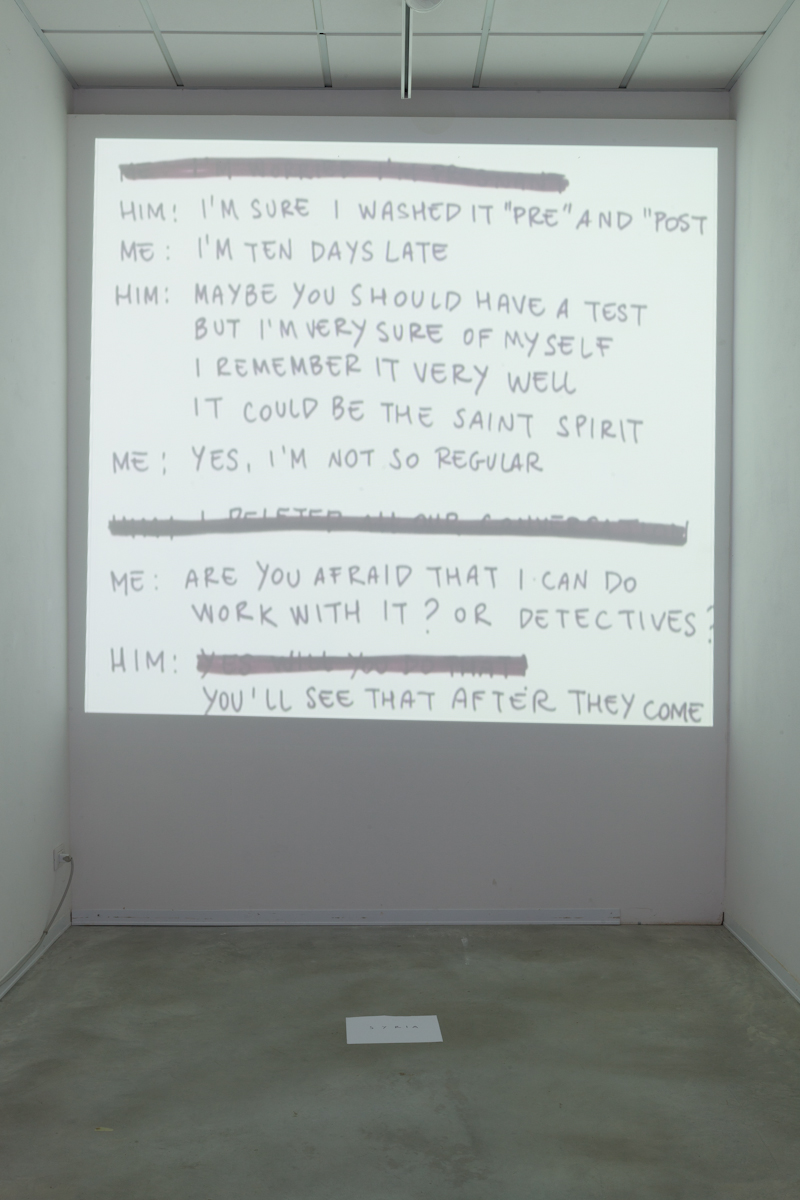 HIM: I'M SURE I WASHED IT "PRE" AND "POST
ME: I'M TEN DAYS LATE
HIM: MAYBE YOU SHOULD HAVE A TEST
BUT I'M VERY SURE OF MYSELF
I REMEMBER IT VERY WELL
IT COULD BE THE SAINT SPIRIT
ME: YES, I'M NOT SO REGULAR
I DELETED ALL OUR
ME: ARE YOU AFRAID THAT I CAN DO
WORK WITH IT? OR DETECTIVES?
HIM: YES WILL YOU DO THAT
YOU'LL SEE THAT AFTER THEY COME